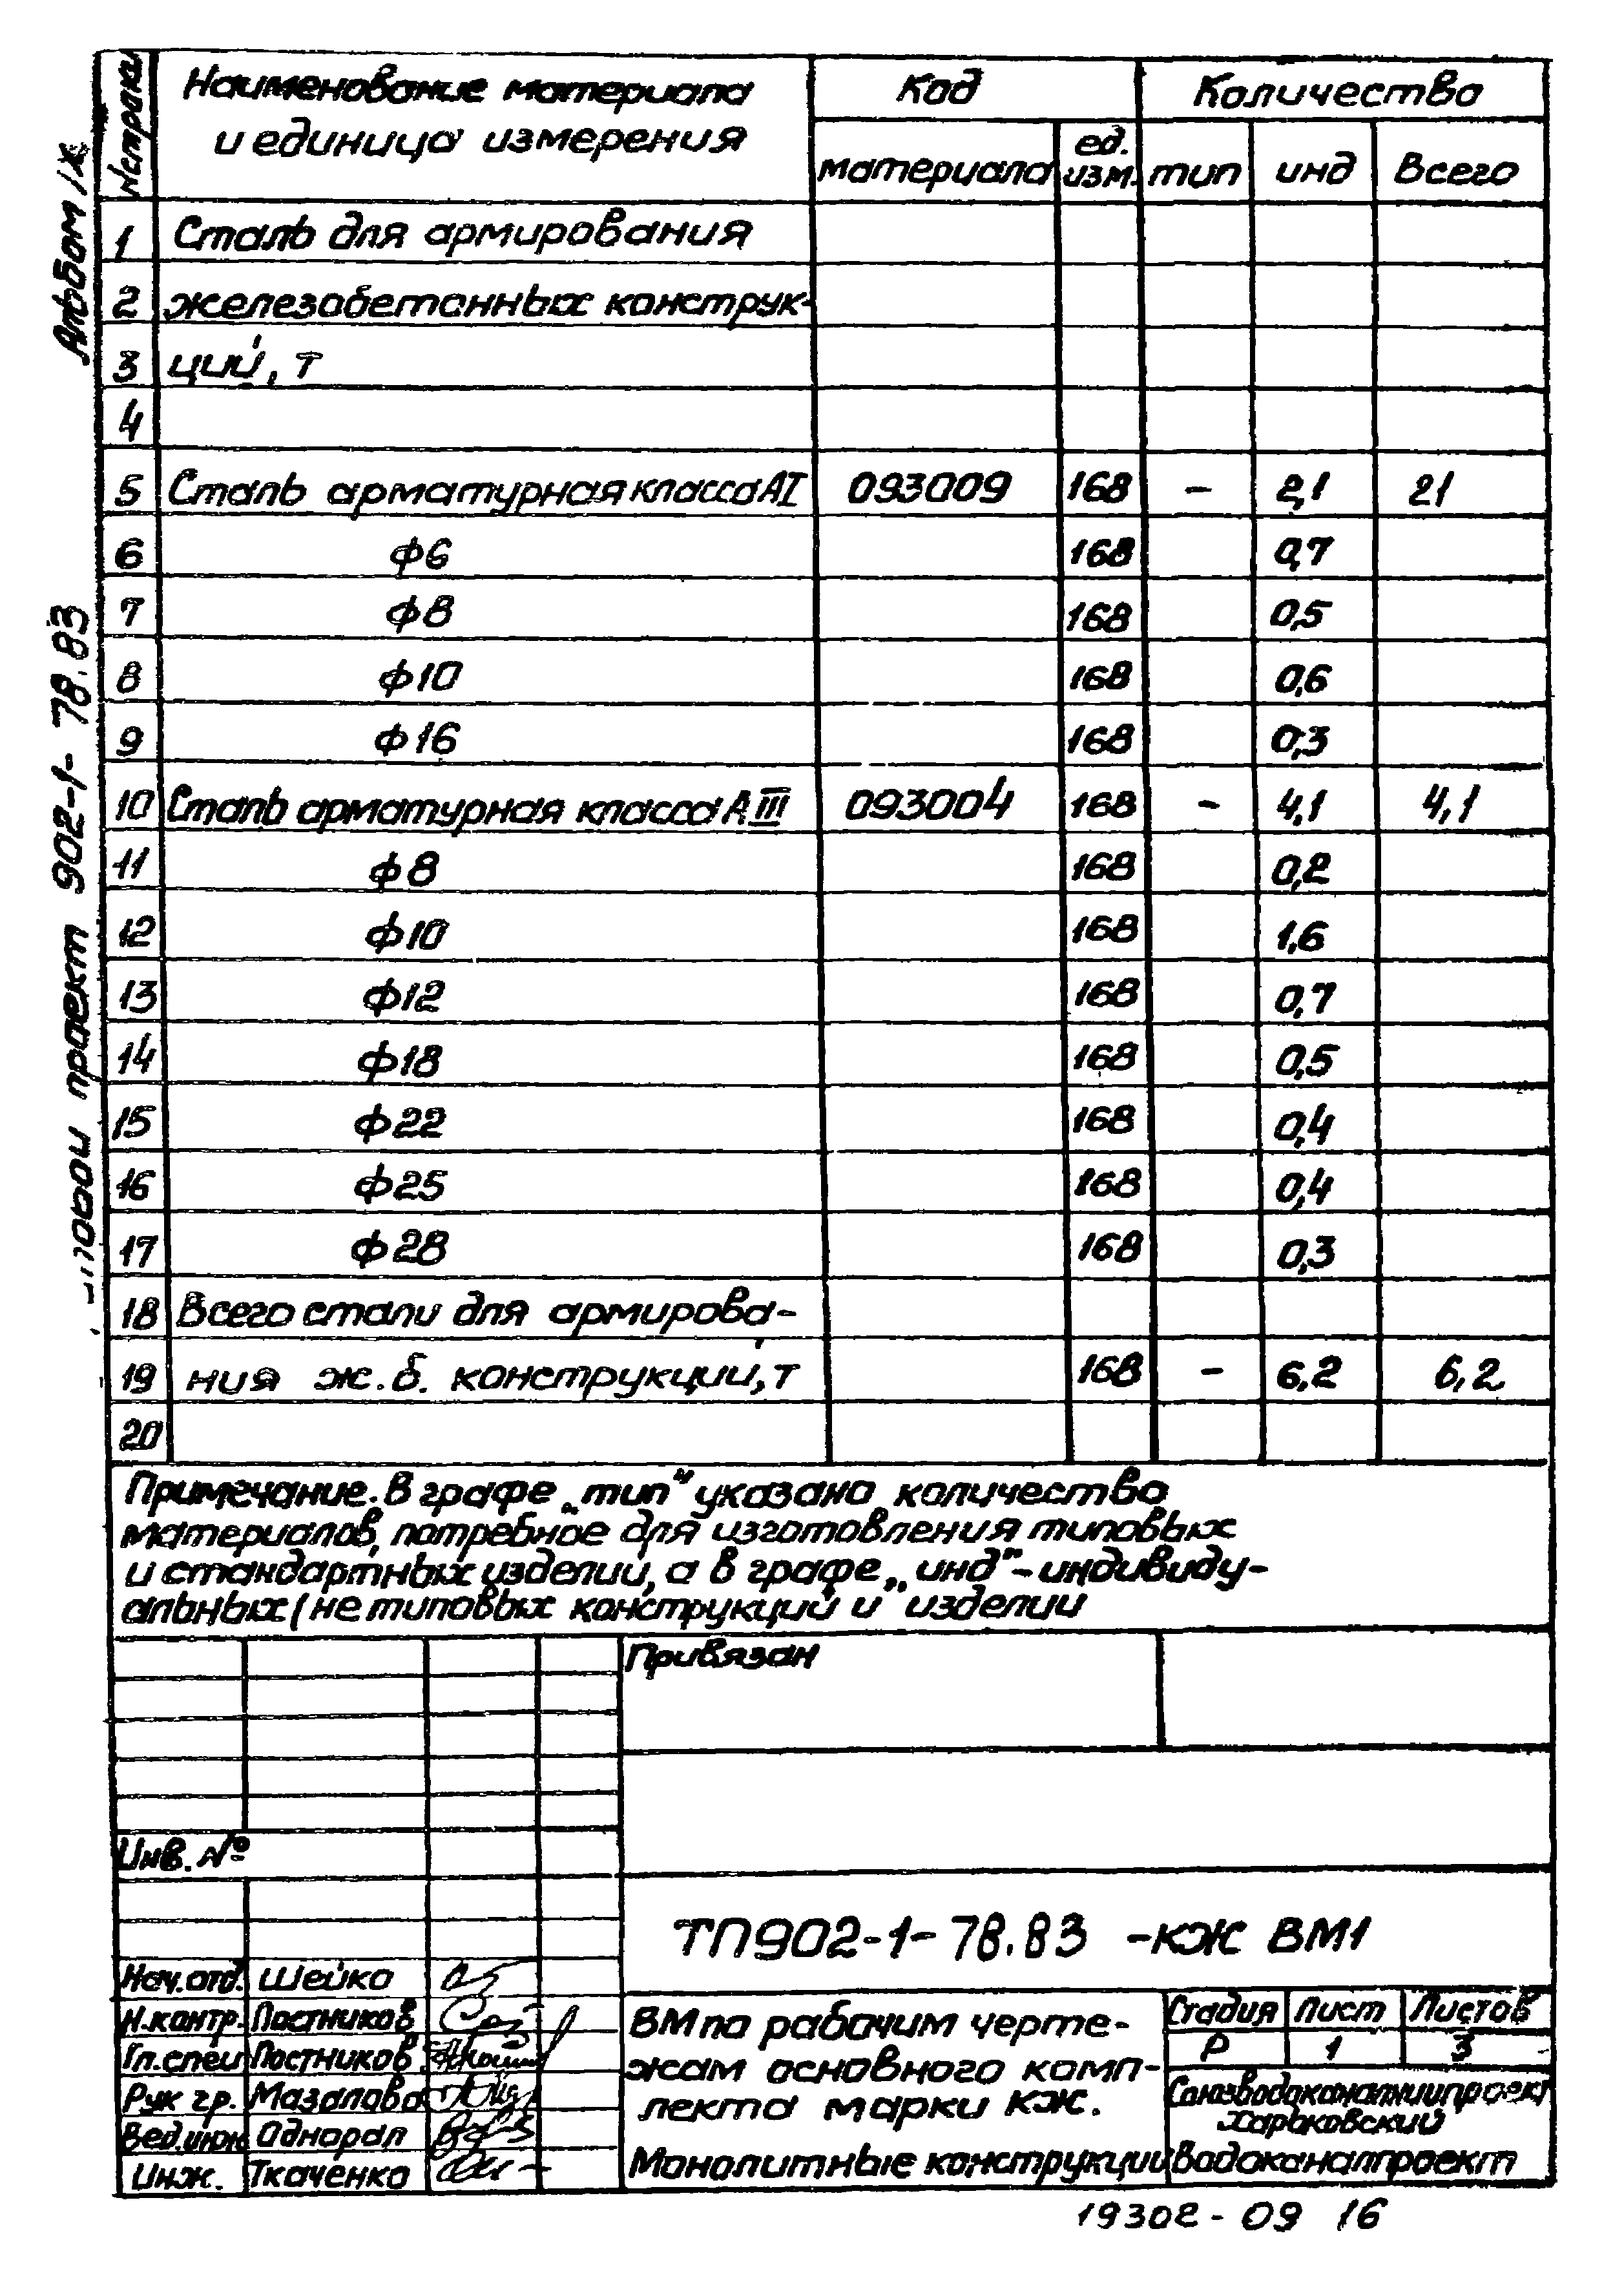 Альбом IX
Типовой проект 902-1-78.83
N строки
Наименование материала
и единица измерения
Код
Количество
материала
ед.
изм.
тип
инд
Всего
1 Сталь для армирования
2 железобетонных конструк-
3 ций, т
4
5 Сталь арматурная класса АI 093009 168 - 2,1 21
6 ф6 168 0,7
7 ф8 168 0,5
8 ф10 168 0,6
9 ф16 168 0,3
10 Сталь арматурная класса АIII 093004 168 - 4,1 4,1
11 ф8 168 0,2
12 ф10 168 1,6
13 ф12 168 0,7
14 ф18 168 0,5
15 ф22 168 0,4
16 ф25 168 0,4
17 ф28 168 0,3
18 Всего стали для армирова-
19 ния ж.б. конструкций, т 168 - 6,2 6,2
20
Примечание. В графе „тип“ указано количество
материалов, потребное для изготовления типовых
и стандартных изделий, а в графе „инд“ - индивиду-
альных (не типовых конструкций и изделий
Привязан
Инв. №
ТП902-1-78.83 -КЖ ВМ1
Нач.отд. Шейко
Н.контр. Постников
Гл.спец Постников
Рук гр. Мазалова
Вед.инж Однорал
Инж. Ткаченко
ВМ по рабочим черте-
жам основного комп-
лекта марки КЖ.
Монолитные конструкции
Стадия Лист Листов
Р 1 3
Союзводоканалниипроект
Харьковский
Водоканалпроект
19302-09 16